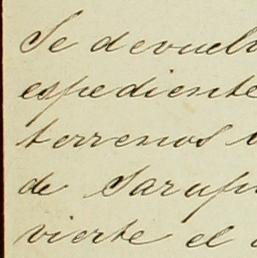 Se devuelv
espediente
terrenos
de Sarufi
vierte el